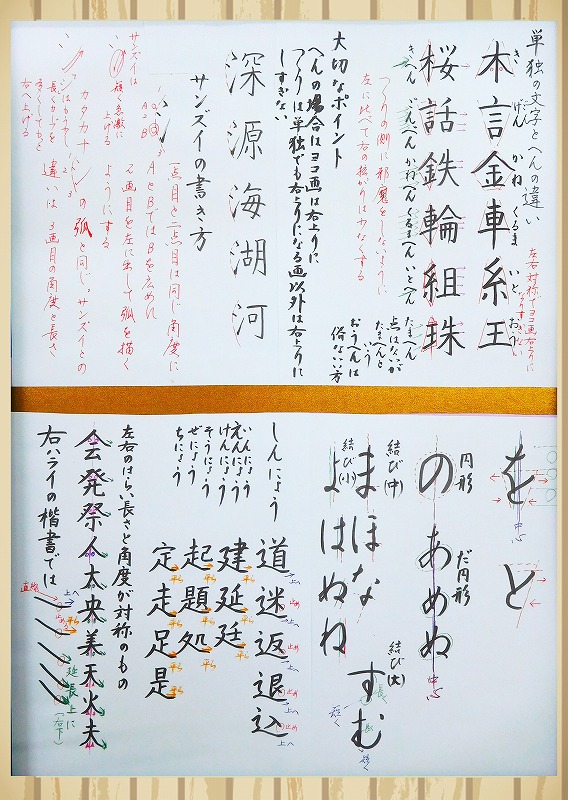 単独の文字とへんの違い
木 言 金 車 糸 王
き げん かね くるま いと おう
左右対称でヨコ画右上りに
桜 話 鉄 輪 組 珠
きへん ごんべん かねへん くるまへん いとへん たまへん
つくりの側に邪魔をしないように
左に比べて右の拡がりは少なくする
点はないが
たまへんと
いう
おうへんは
俗な云い方
大切なポイント
へんの場合はヨコ画は右上りに
つくりは単独でも右上りになる画以外は右上りに
しすぎない
深 源 海 湖 河
サンズイの書き方
一点目と二点目は同じ角度に
AとBではBを広めに
2画目を左に出して弧を描く
ようにする
サンズイは
短く急激に
上げる
カタカナ シ の弧と同じ。サンズイとの
違いは3画目の角度と長さ
長くカーブを
右へ上げる
を と
中心
円形
だ円形
の あ め ぬ
中心
結び(中)
ま ほ な
結び(大)
す む
結び(小)
よ は ぬ ね
しんにょう
道 迷 返 退 込
いんにょう
えんにょう
建 延 廷
けんにょう
そうにょう
起 題 処
ぜにょう
ちにょう
定 走 足 是
左右のはらい長さと角度が対称のもの
会 発 祭 人 太 央 美 天 火 夫
右ハライの楷書では
直線
延長上に
(右下)